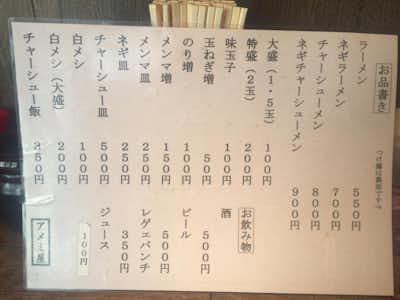 お品書き
つけ麺は裏面です
ラーメン 550円
ネギラーメン 700円
チャーシューメン 800円
ネギチャーシューメン 900円
大盛(1・5玉) 100円
特盛(2玉) 200円
味玉子 100円
玉ねぎ増 50円
のり増 100円
メンマ増 150円
メンマ皿 250円
ネギ皿 250円
チャーシュー皿 500円
白メシ 100円
白メシ(大盛) 200円
チャーシュー飯 350円
お飲み物
酒 500円
ビール 500円
レゲエパンチ 350円
ジュース 100円
アメミ屋